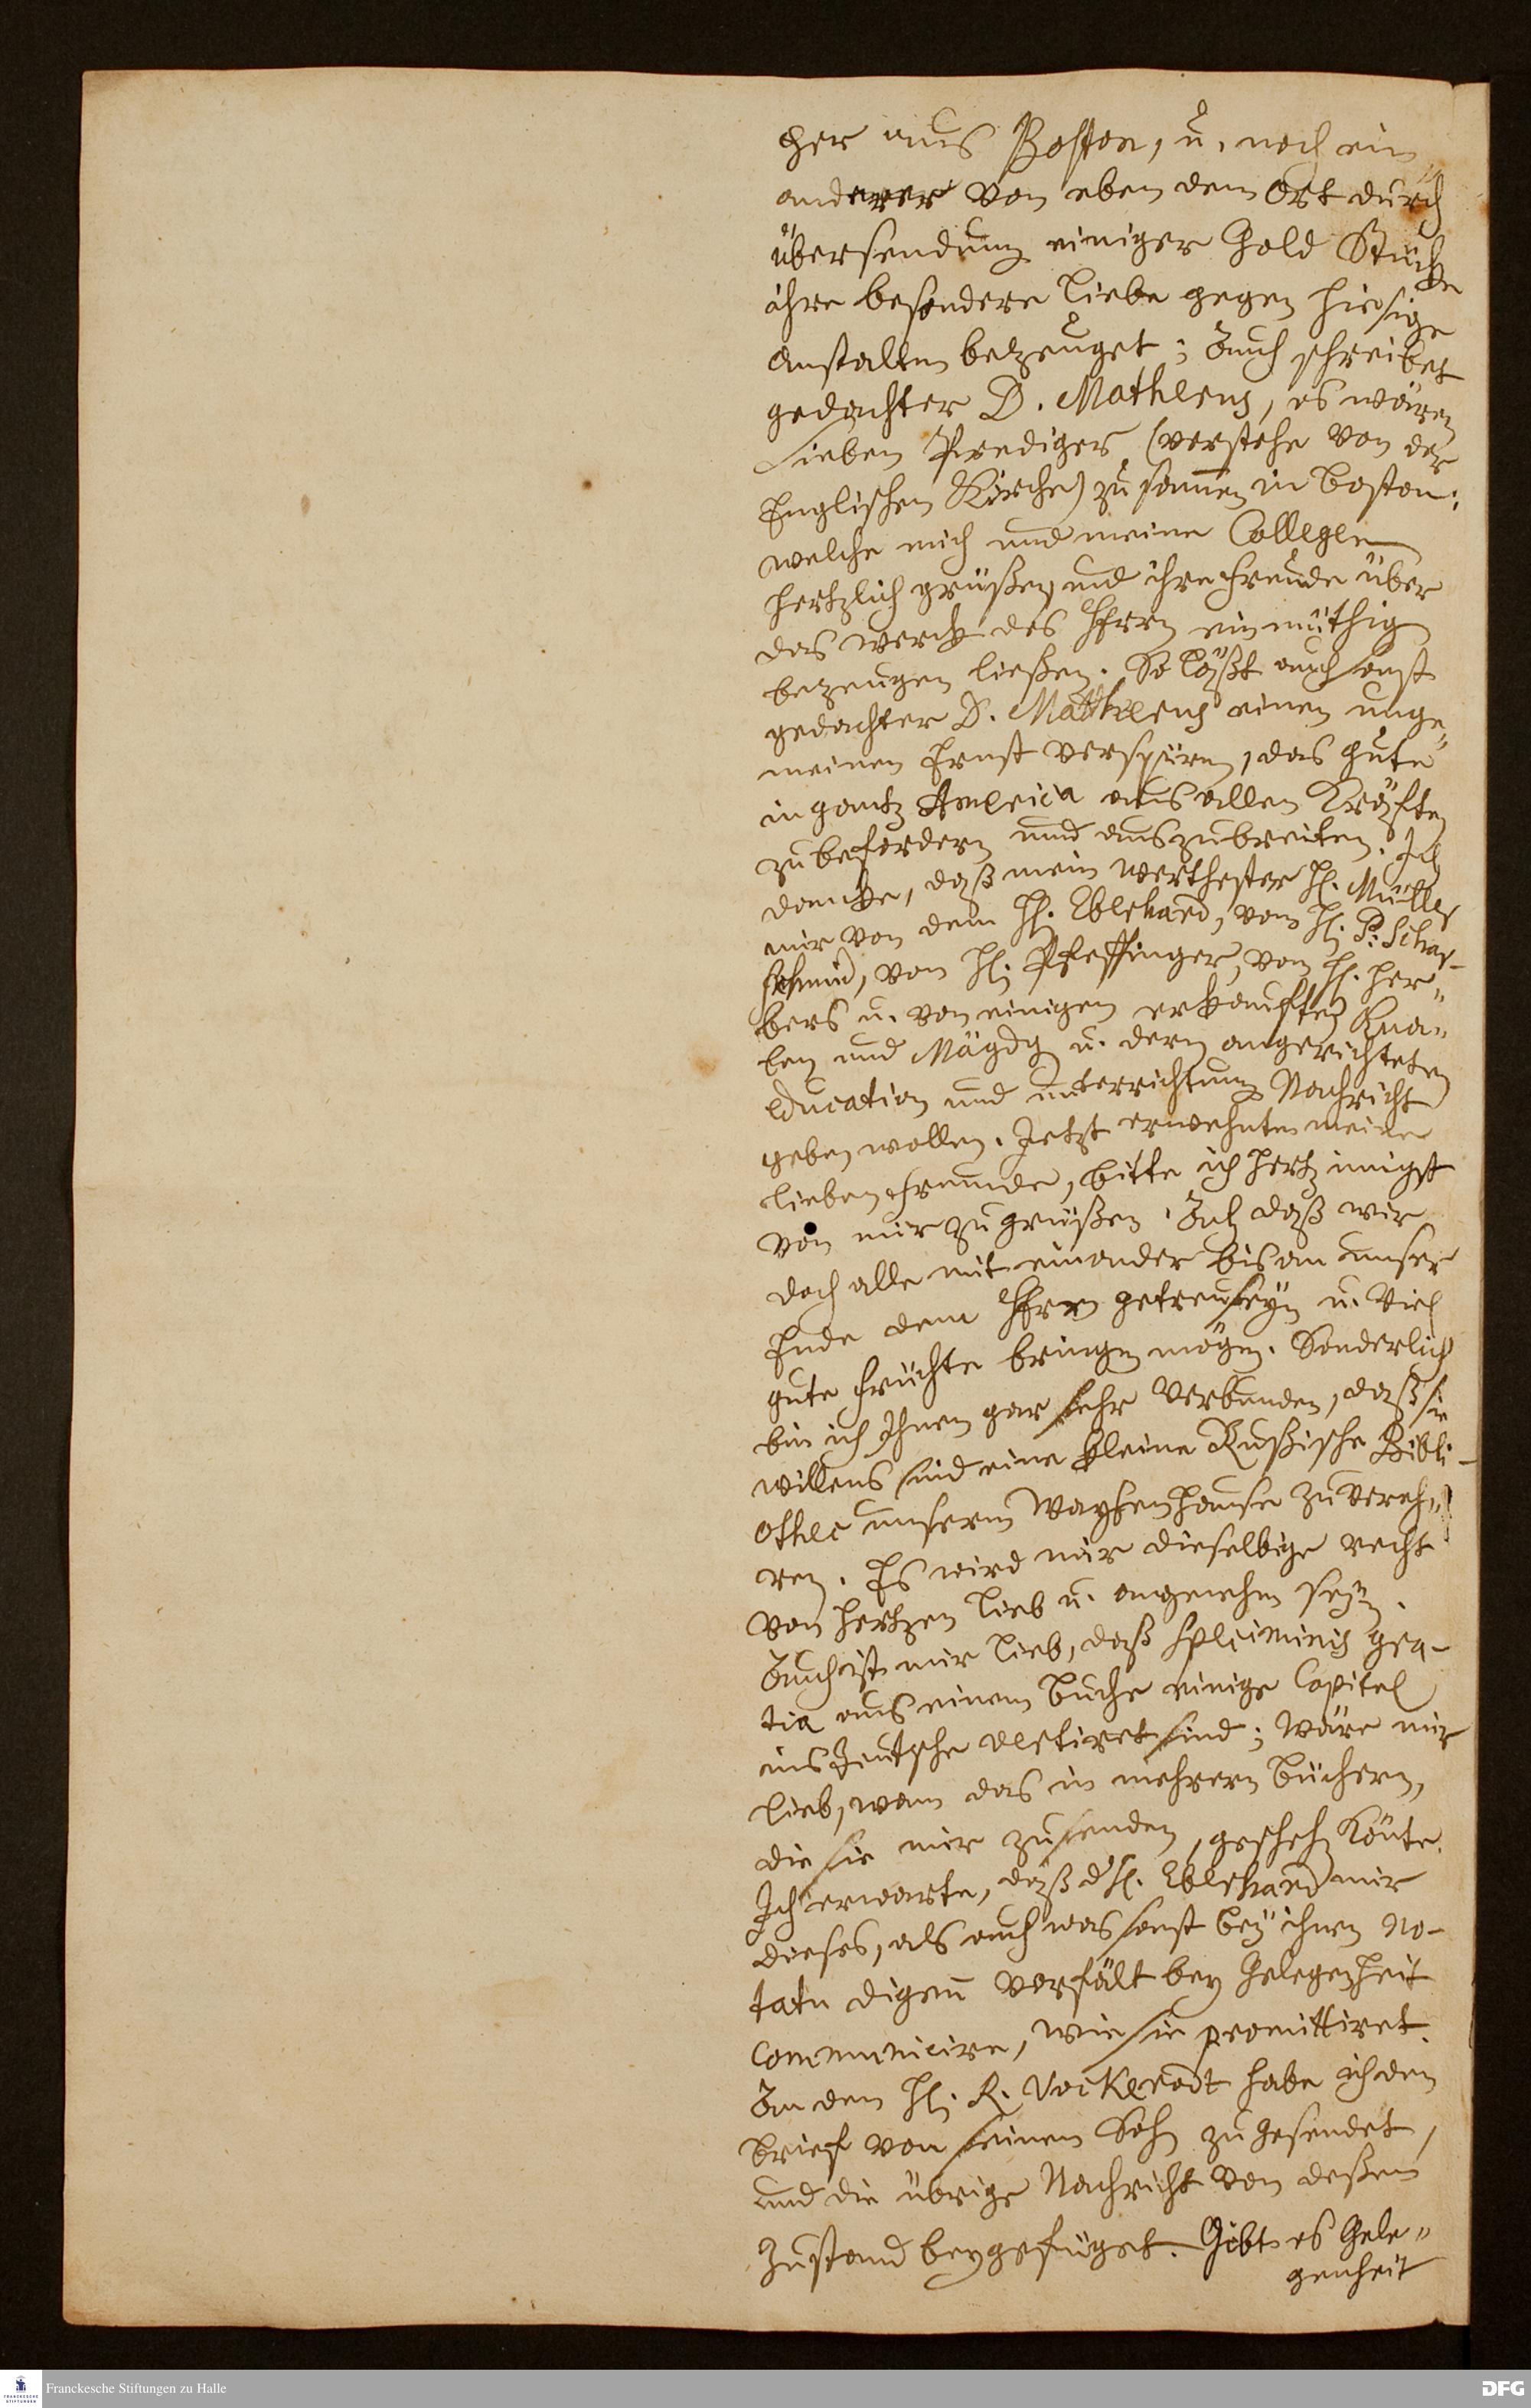 her aus Boston, u. noch ein
anderer von eben dem Ort durch
übersendung einiger Gold Stücke
ihre besondere Liebe gegen hiesige
Anstalten bezeuget; Auch schreibet
gedachter D. Matherus, es wären
sieben Prediger (verstehe von der
Englischen Kirche) zusammen in Boston,
welche mich und meine Collegen
hertzlich grüßen und ihre Freude über
das werck des HErrn einmüthig
bezeugen ließen. So läßt auch sonst
gedachter D. Matherus einen unge„
meinen Ernst verspüren, das gute
in gantz America aus allen Kräften
zu befordern und auszubreiten. Ich
dancke, daß mein werthester H. Müller
mir von dem H. Eberhard, vom H. P. Schar-
schmid, von H. Pfeffinger, von H. Her„
bers u. von einigen erkaufften Kna„
ben und Mägdg u. dern angerichteten
Education und unterrichtung Nachricht
geben wollen. Jetzt erwehnte meine
lieben Freunde, bitte ich hertzinnigst
von mir zu grüßen. Ach daß wir
doch alle mit einander bis an unser
Ende dem HErrn getreu seyn u. viel
gute Früchte bringen mögen. Sonderlich
bin ich Ihnen gar sehr verbunden, daß sie
willens sind eine kleine Rußische Bibli-
othec unserm Waysenhause zu vereh„
ren. Es wird mir dieselbige recht
von Hertzen lieb u. angenehm seyn.
Auch ist mir lieb, daß speciminis gra-
tia aus einem Buche einige Capitel
ins Teutsche vertiret sind; wäre mir
lieb, wann das in mehrern Büchern,
die sie mir zusenden, geschehen könte.
Ich erwarte, daß d. H. Eberhard mir
dieses, als auch was sonst bey ihnen no-
tatu dignum vorfält bey Gelegenheit
communicire, wie sie promittiret.
An den H. R. Vockerodt habe ich den
Brief von seinem Sohn zu gesendet,
und die übrige Nachricht von deßen
Zustand beygefüget. Gibt es Gele„
genheit
Franckesche Stiftungen zu Halle
DFG